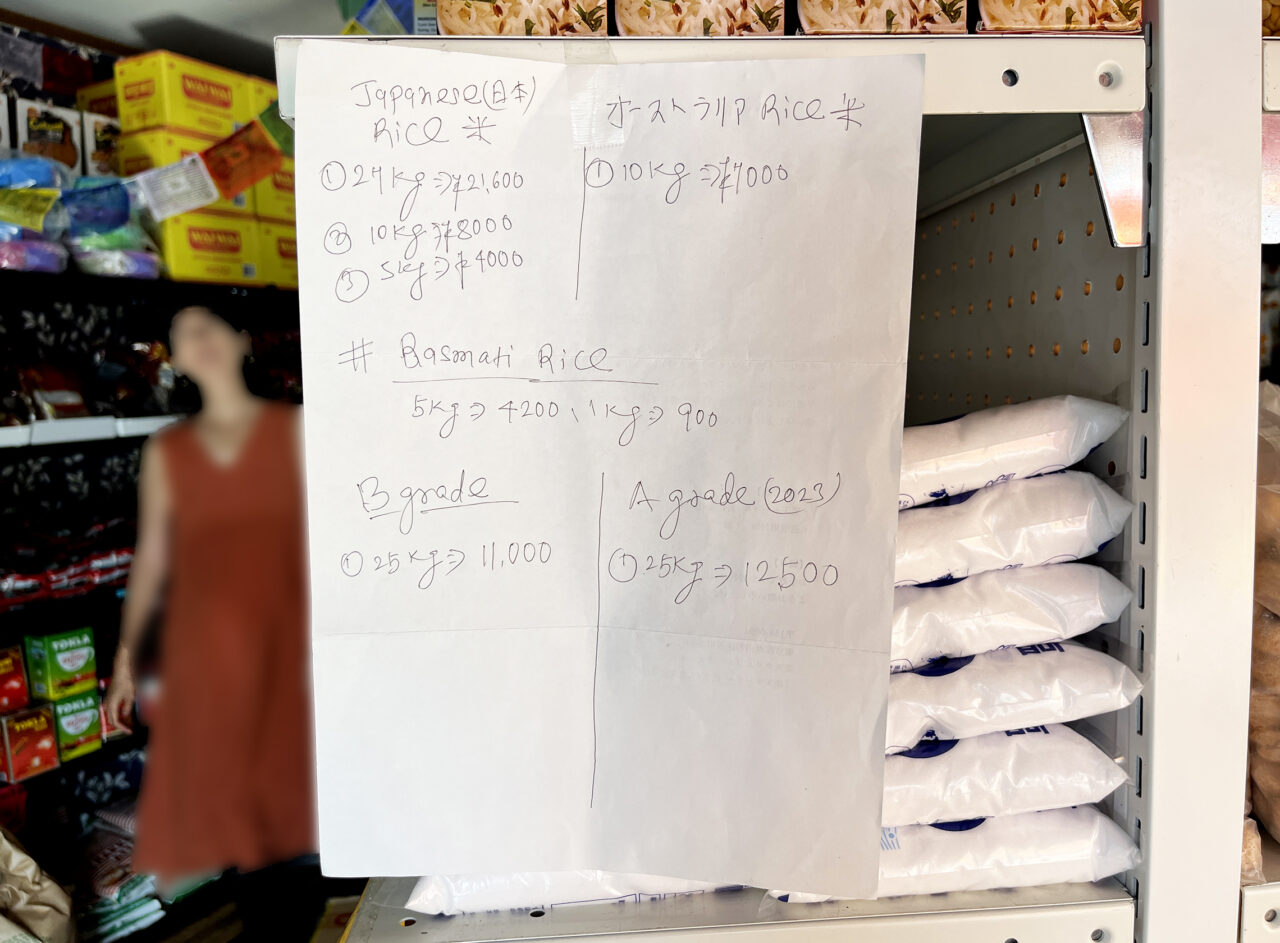 Japanese(日本)
Rice 米
① 24 Kg ⇒ ¥21,600
② 10 Kg ⇒ ¥8000
③ 5kg ⇒ ¥4000
オーストラリア Rice 米
① 10 Kg ⇒ ¥7000
# Basmati Rice
5Kg ⇒ 4200、1 Kg ⇒ 900
B grade
① 25 Kg ⇒ 11,000
A grade (2023)
① 25Kg ⇒ 12,500
WAI WAI
WAI WAI
WAI WAI
TOKLA
TOKLA
TOKLA